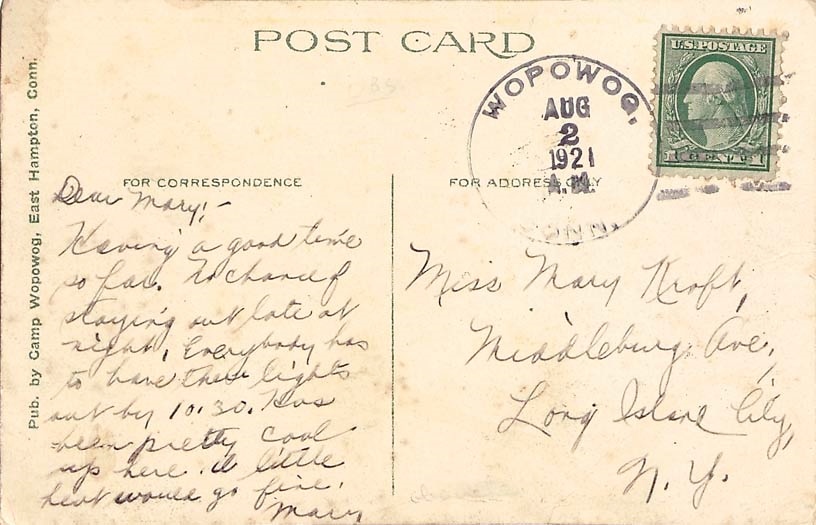 POST CARD
Pub. by Camp Wopowog, East Hampton, Conn.
WOPOWOG,
AUG
2
1921
A.M.
CONN.
U.S. POSTAGE
1 CENT 1
FOR CORRESPONDENCE
FOR ADDRESS ONLY
Dear Mary:-
Having a good time
so far. No chance of
staying out late at
night. Everybody has
to have their lights
out by 10:30. Has
been pretty cool
up here. A little
heat would go fine.
Mary
Miss Mary Kroft,
Middleburg Ave,
Long Island City,
N. Y.